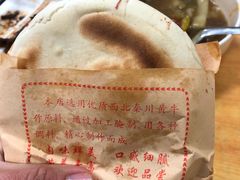 本店选用优质西北秦川黄牛
作原料,通过加工腌制,用各种
调料,精心制作而成。
卤味鲜美 口感细腻
欢迎品尝